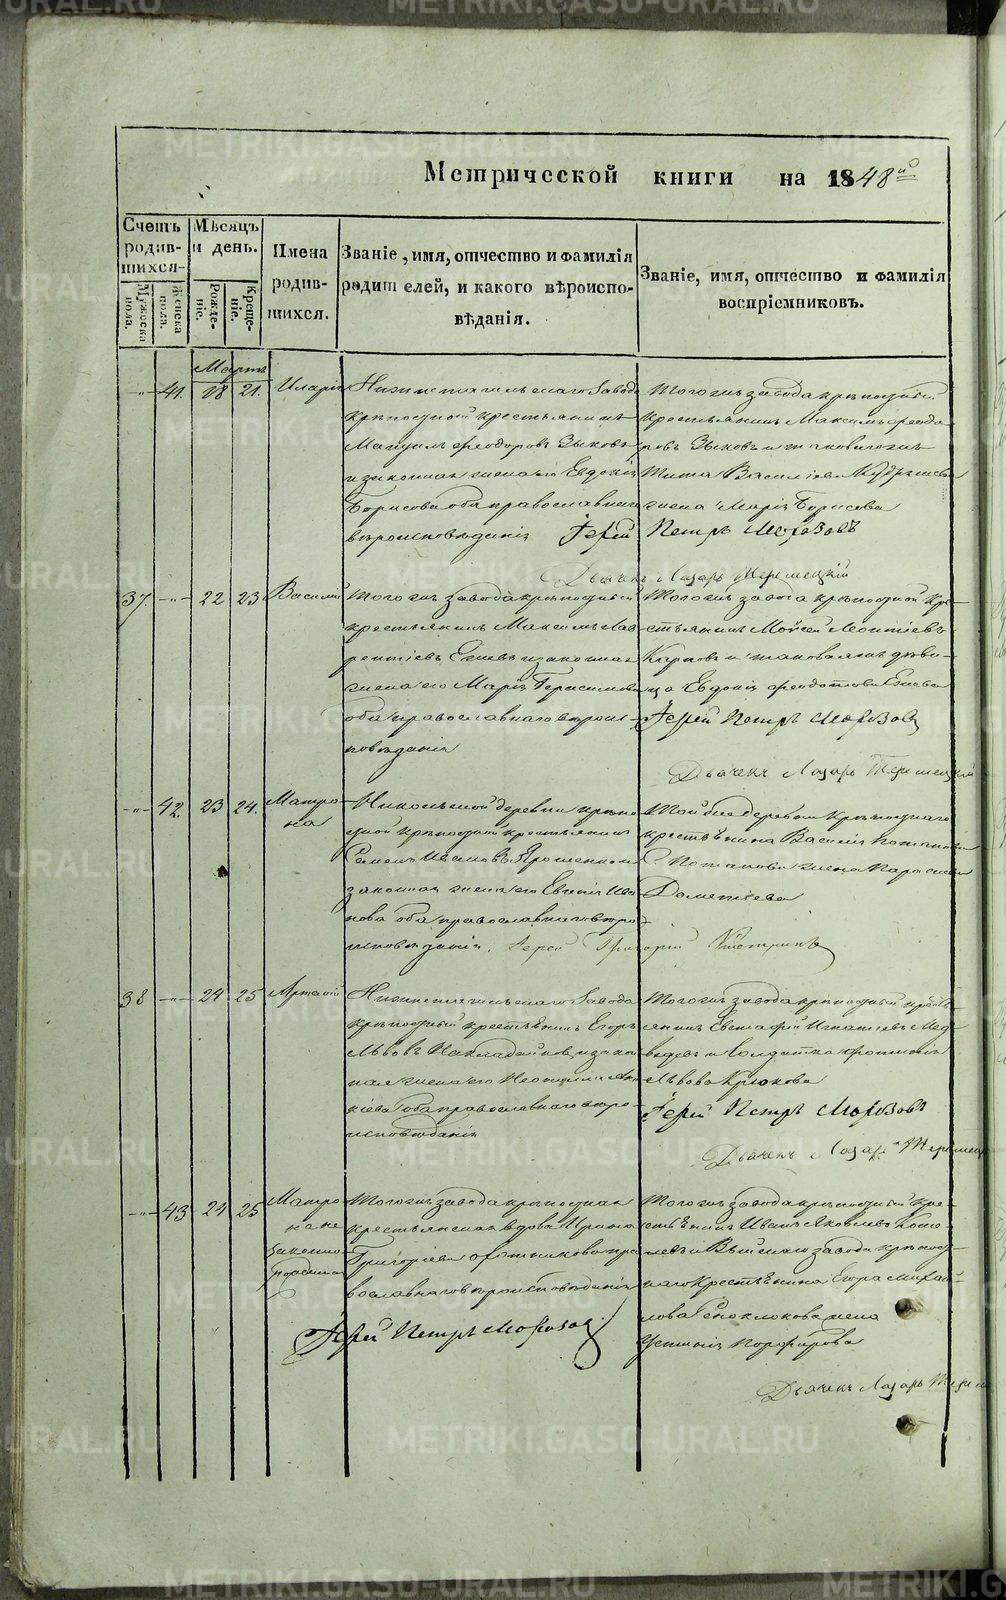 METRIKI.GASO-URAL.RU
Метрической книги на 1848й
Счетъ родившихся
Мѣсяцъ и день.
Имена родившихся.
Званіе, имя, отчество и фамилія родителей, и какого вѣроисповѣданія.
Званіе, имя, отчество и фамилія воспріемниковъ.
Мужеска пола.
Женска пола.
Рожденіе.
Крещеніе.
Мартъ
41. 18 21.
Нижнетагильскаго Завода
крѣпостной крестьянинъ
Ѳеодоровъ Зыковъ
и законная жена его Евдокія
Борисова оба православнаго
вѣроисповѣданія
Тогожъ завода крѣпостной
крестьянинъ Максимъ Ѳеодо-
ровъ Зыковъ и таковагожъ
Тита Васильева
жена Марія Борисова
Іерей Петръ Морозовъ
Дьячекъ Лазарь
37. 22 23 Василій
Тогожъ завода крѣпостной
крестьянинъ Максимъ Лав-
рентіевъ и законная
жена его Марія Герасимова
оба православнаго вѣроис-
повѣданія
Тогожъ завода крѣпостной кре-
стьянинъ Моисей Леонтіевъ
Карповъ и таковаяжъ дѣви-
ца Евдокія Ѳеодотова
Іерей Петръ Морозовъ
Дьячекъ Лазарь
42. 23 24. Матро-
на
деревни
крѣпостной крестьянинъ
Семенъ Ивановъ
законная жена его Евгенія Ива-
нова оба православнаго вѣро-
исповѣданія. Іерей Григорій
Той же деревни крѣпостнаго
крестьянина Василія
Потапова жена Параскева
Дометіева
38 24 25
Нижнетагильскаго Завода
крѣпостный крестьянинъ Егоръ
Львовъ и закон-
ная жена его
оба православнаго вѣро-
исповѣданія
Тогожъ завода крѣпостный кресть-
янинъ Евстафій Игнатіевъ Мед-
ведевъ и Солдатка
Львова Крюкова
Іерей Петръ Морозовъ
Дьячекъ Лазарь
43 24 25 Матро-
на не
законно
рожденна
Тогожъ завода крѣпостная
крестьянская вдова Ирина
Григорьева пра-
вославнаго вѣроисповѣданія
Іерей Петръ Морозовъ
Тогожъ завода крѣпостный кре-
стьянинъ Иванъ Яковлевъ
и Выйскаго завода крѣпост-
наго крестьянина Егора Михай-
лова жена
Порфирова
Дьячекъ Лазарь